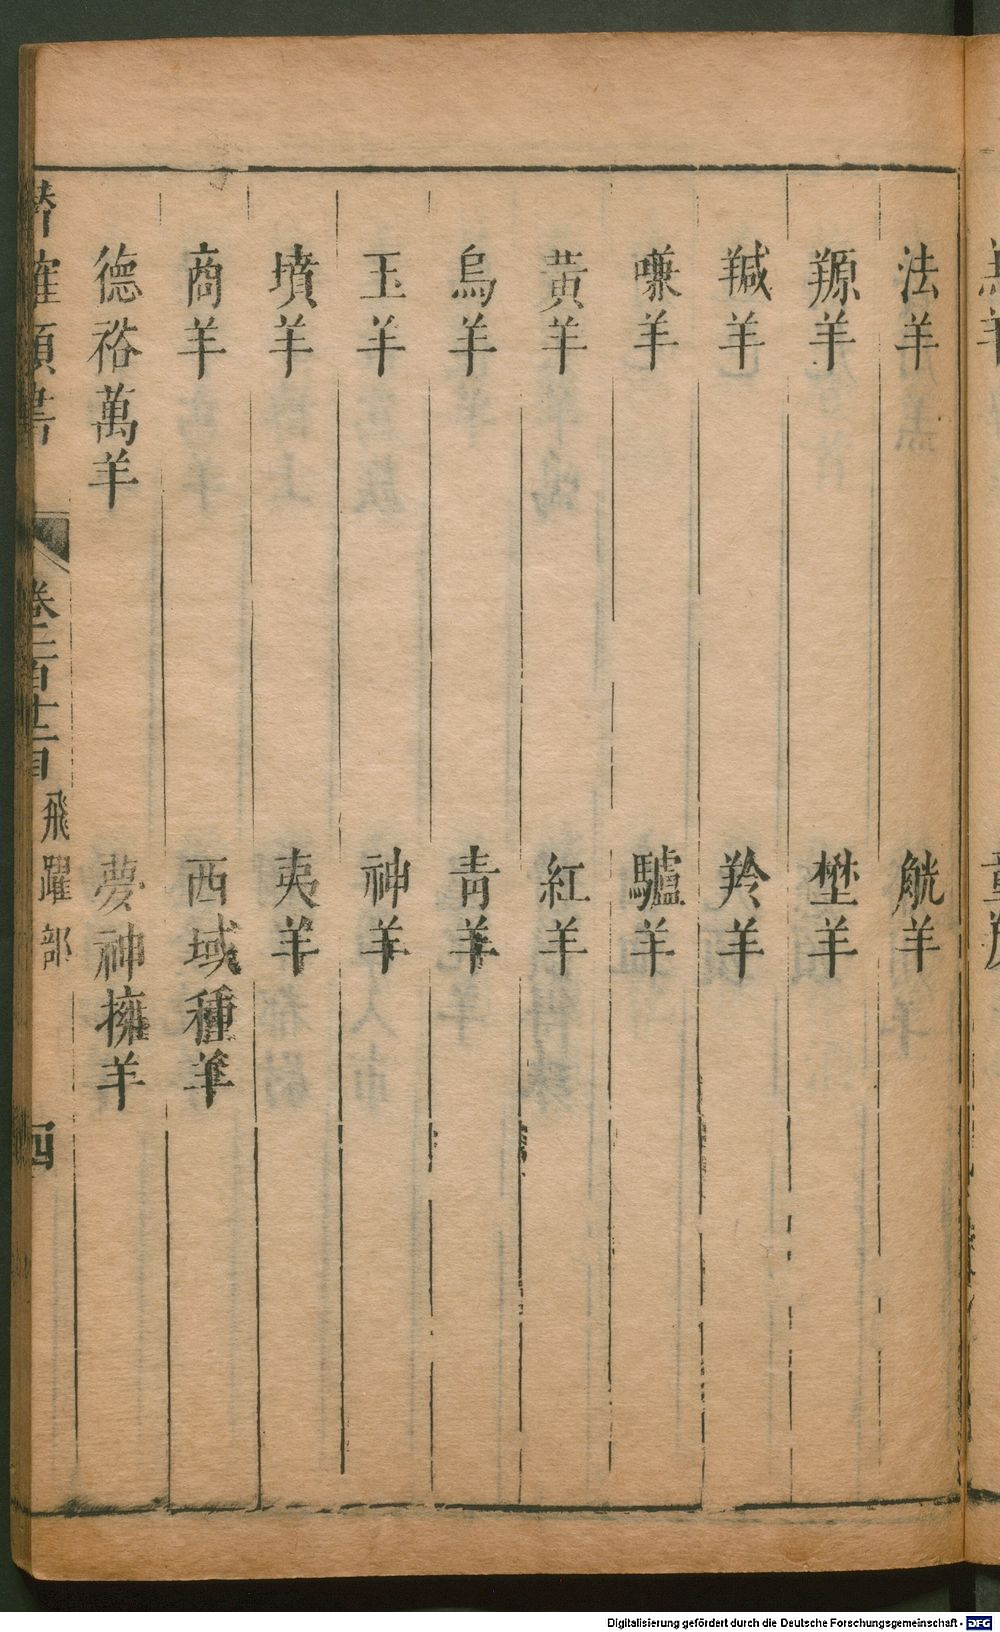 法羊　觥羊
羱羊　㙷羊
羬羊　羚羊
嗛羊　驢羊
黃羊　紅羊
烏羊　青羊
玉羊　神羊
墳羊　夷羊
商羊　西域種羊
德裕萬羊　夢神擁羊
飛躍部　四
Digitalisierung gefördert durch die Deutsche Forschungsgemeinschaft - DFG